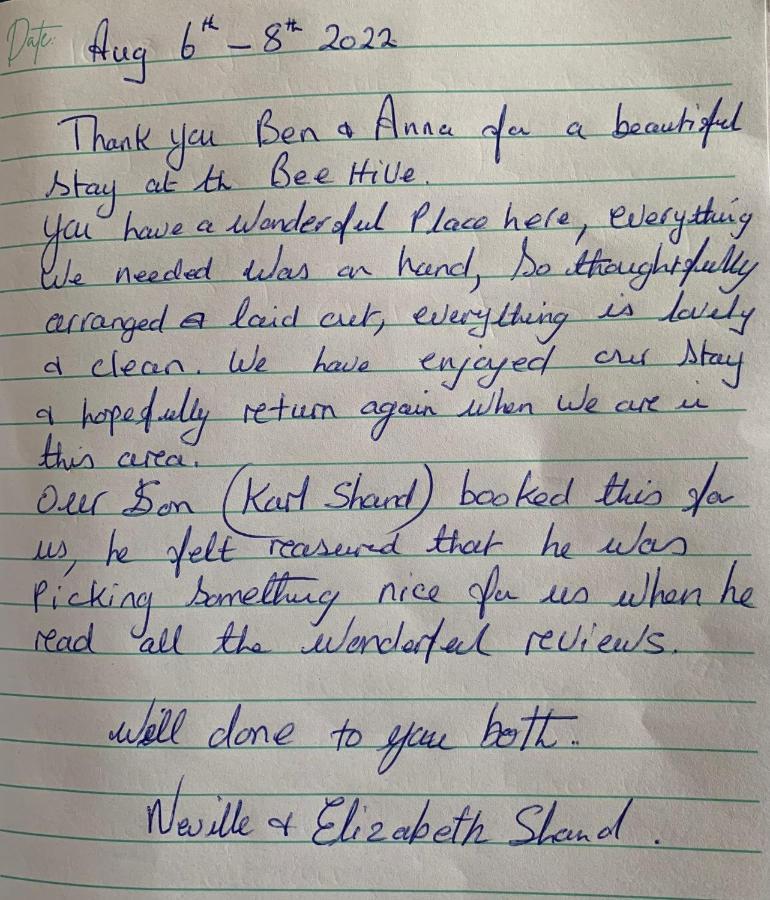 Date: Aug 6th - 8th 2022
Thank you Ben & Anna for a beautiful
stay at th Bee Hive.
You have a wonderful Place here, everything
we needed was on hand, so thoughtfully
arranged & laid out, everything is lovely
& clean. We have enjoyed our stay
& hopefully return again when we are in
this area.
Our Son (Karl Shand) booked this for
us, he felt reasured that he was
Picking something nice for us when he
read all the wonderful reviews.
Well done to you both.
Neville & Elizabeth Shand.